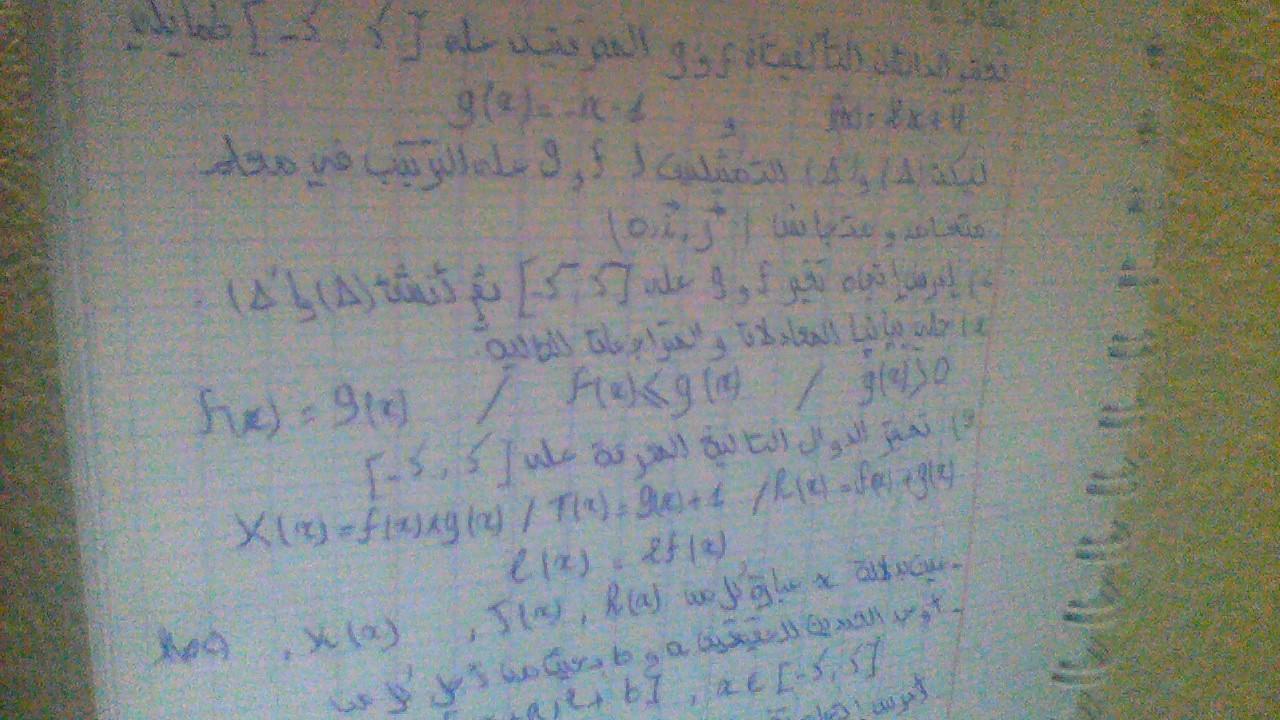 نعتبر الدالتان التآلفيتان f و g المعرفتين على [-5 , 5] كما يلي
f(x) = 2x+4 و g(x) = -x-1
ليكن (Δ) و (Δ') التمثيلين لـ f و g على الترتيب في معلم
متعامد و متجانس (o, i, j)
إدرس إتجاه تغير f و g على [-5, 5] ثم أنشئ (Δ) و (Δ') .
2) حل بيانيا المعادلات و المتراجحات التالية
f(x) = g(x) / f(x) ≤ g(x) / g(x) > 0
3) نعتبر الدوال التالية المعرفة على [-5 , 5]
K(x) = f(x)×g(x) / T(x) = g(x)+1 / h(x) = f(x)+g(x)
l(x) = 2f(x)
- عين بدلالة x عبارة كل من h(x) , T(x) , K(x) ,
العددين الحقيقيين a و b من أجل كل من
b] , x ∈ [-5, 5]